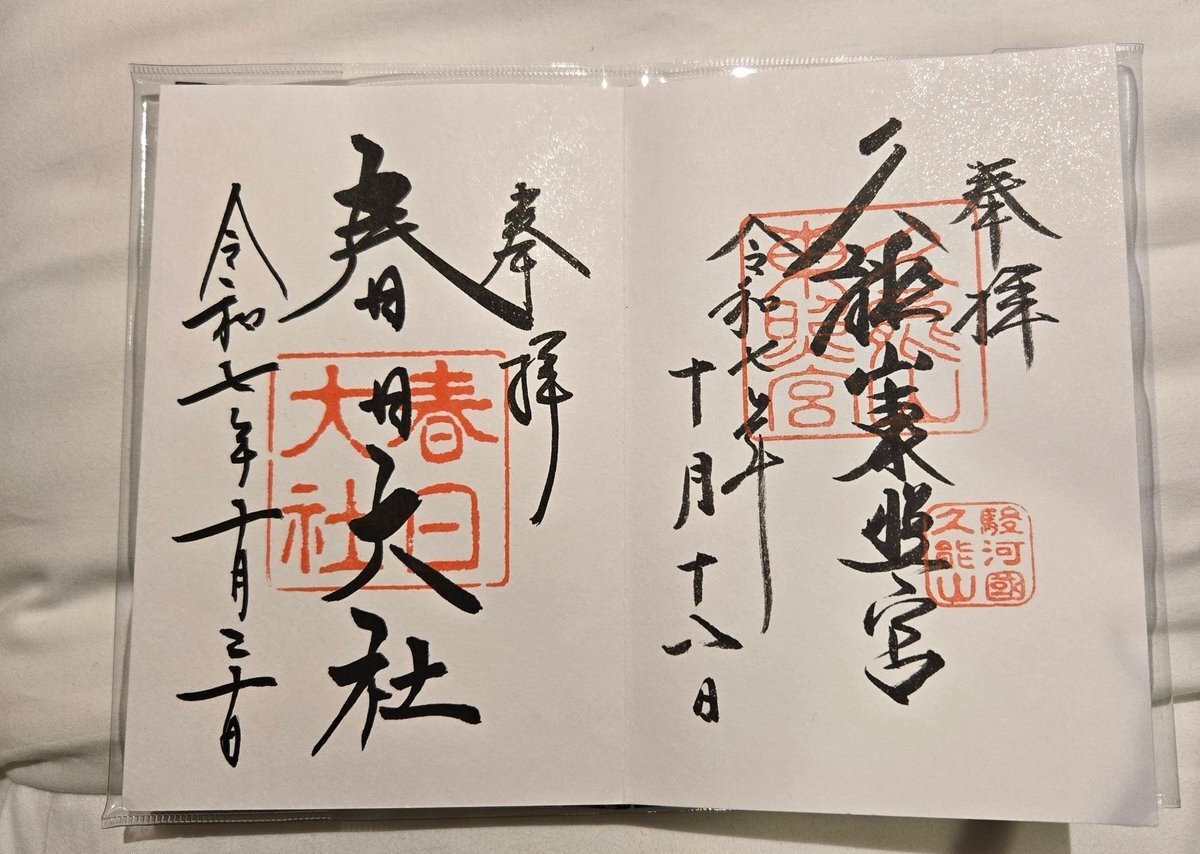 奉拝
久能山東照宮
久能山
東照宮
駿河國
久能山
令和七年
十月十八日
奉拝
春日大社
春日
大社
令和七年十月二十日